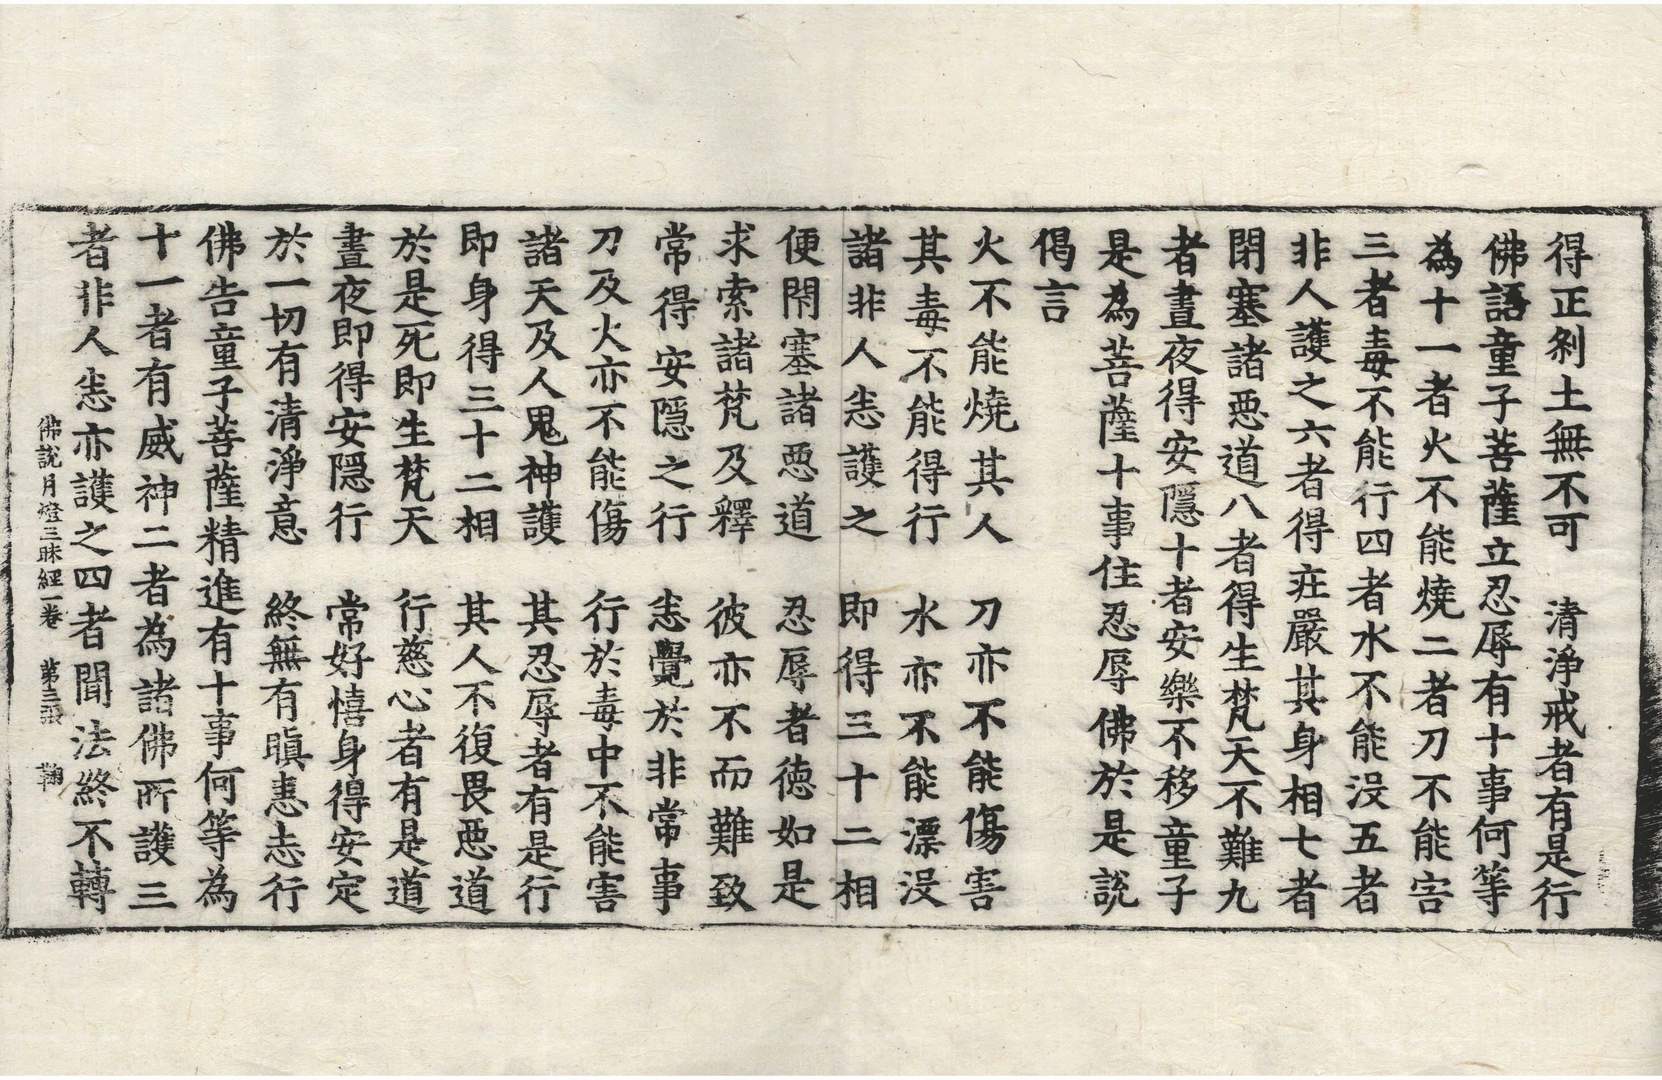 得正刹土無不可　清淨戒者有是行
佛語童子菩薩立忍辱有十事何等
為十一者火不能燒二者刀不能害
三者毒不能行四者水不能没五者
非人護之六者得疘嚴其身相七者
閉塞諸惡道八者得生梵天不難九
者晝夜得安隱十者安樂不移童子
是為菩薩十事住忍辱佛於是說
偈言
火不能燒其人　刀亦不能傷害
其毒不能得行　水亦不能漂没
諸非人恙護之　即得三十二相
便閇塞諸惡道　忍辱者德如是
求索諸梵及釋　彼亦不而難致
常得安隱之行　恙覺於非常事
刀及火亦不能傷　行於毒中不能害
諸天及人鬼神護　其忍辱者有是行
即身得三十二相　其人不復畏惡道
於是死即生梵天　行慈心者有是道
晝夜即得安隱行　常好憘身得安定
於一切有清淨意　終無有瞋恚志行
佛告童子菩薩精進有十事何等為
十一者有威神二者為諸佛所護三
者非人恙亦護之四者聞法終不轉
佛說月燈三昧經一卷　第三張　鞠